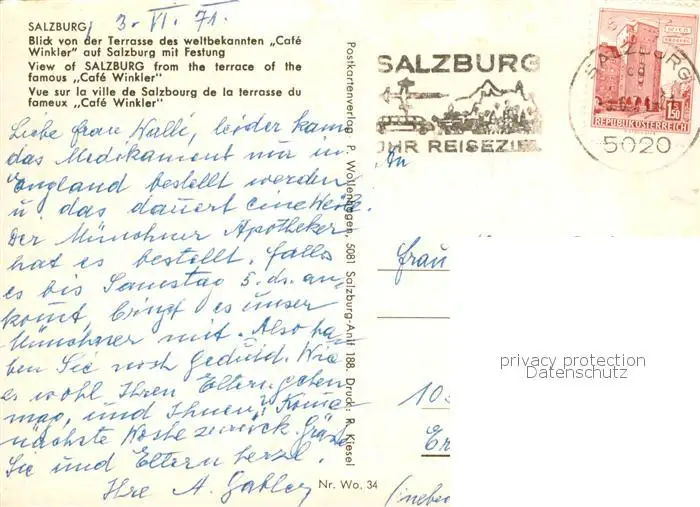 SALZBURG, 3. VI. 71.
Blick von der Terrasse des weltbekannten „Café
Winkler" auf Salzburg mit Festung
View of SALZBURG from the terrace of the
famous „Café Winkler"
Vue sur la ville de Salzbourg de la terrasse du
fameux „Café Winkler"
Liebe Frau Halle, leider kann
das Medikament nur in
England bestellt werden
u. das dauert eine Weile.
Der Münchner Apotheker
hat es bestellt. Falls
es bis Samstag 5. ds. an-
kommt, bringt es unser
Münchner mit. Also ha-
ben Sie noch Geduld. Wie
es wohl Ihren Eltern gehen
mag, und Ihnen? Komme
nächste Woche zurück. Grüße
Sie und Eltern herzl.
Ihre A. Gabler
Postkartenverlag: P. Wollenhagen, 5081 Salzburg-Anif 188. Druck: R. Kiesel
Nr. Wo. 34
SALZBURG
IHR REISEZIEL
SALZBURG
5020
1.50
REPUBLIK ÖSTERREICH
An
Frau
10
Er
(neben
privacy protection
Datenschutz